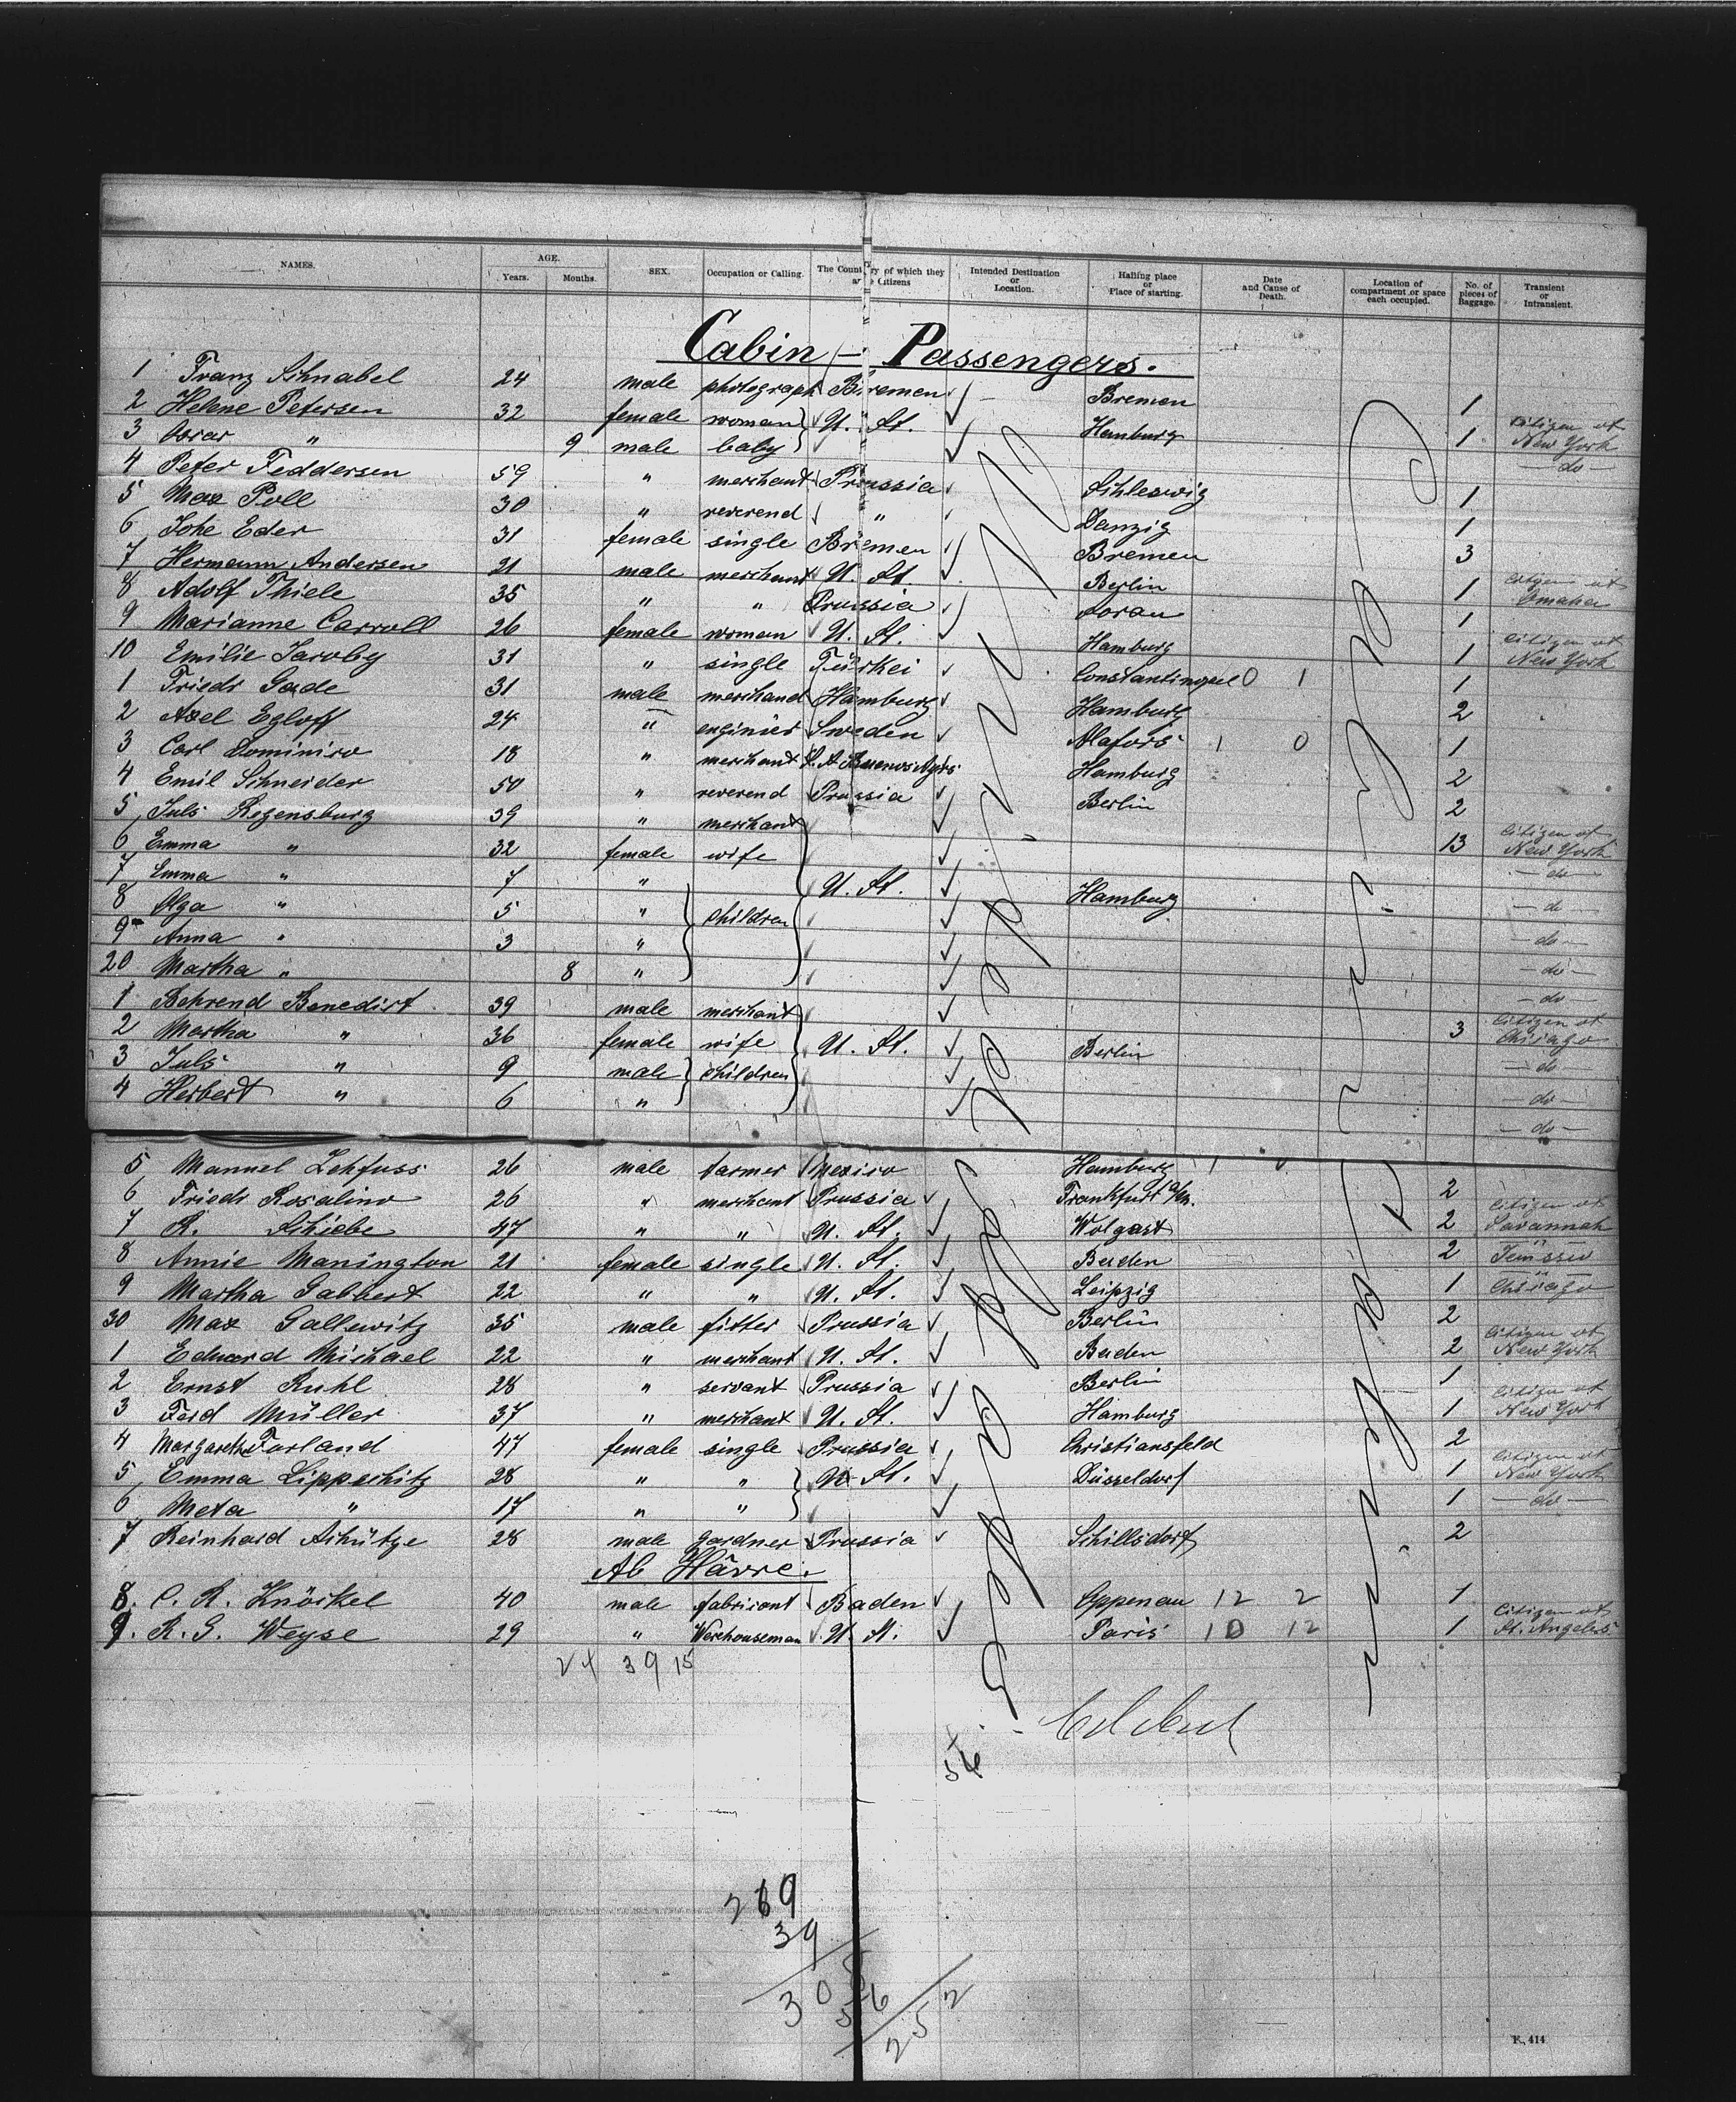 NAMES. AGE. Years. Months. SEX. Occupation or Calling. The Country of which they are Citizens Intended Destination or Location. Hailing place or Place of starting. Date and Cause of Death. Location of compartment or space each occupied. No. of pieces of Baggage. Transient or Intransient.
Cabin - Passengers.
1 Franz Schnabel 24 male photograph Bremen Bremen 1
2 Helene Petersen 32 female woman U. St. Hamburg 1 Citizen of New York
3 Oscar " 9 male baby - do -
4 Peter Feddersen 59 " merchant Prussia Schleswig 1
5 Max Poll 30 " reverend " Danzig 1
6 Johe Eder 31 female single Bremen Bremen 3
7 Hermann Andersen 21 male merchant U. St. Berlin 1 Citizen of Omaha
8 Adolf Thiele 35 " " Prussia Soran 1
9 Marianne Carroll 26 female woman U. St. Hamburg 1 Citizen of New York
10 Emilie Jacoby 31 " single Türkei Constantinopel 0 1 1
1 Friedr Gade 31 male merchand Hamburg Hamburg 2
2 Axel Egloff 24 " enginier Sweden Alafors 1 0 1
3 Carl Dominico 18 " merchant S. A. Buenos Ayrs Hamburg 2
4 Emil Schneider 50 " reverend Prussia Berlin 2
5 Juls Regensburg 39 " merchant 13 Citizen of New York
6 Emma " 32 female wife - do -
7 Emma " 7 " U. St. Hamburg - do -
8 Olga " 5 " children - do -
9 Anna " 3 " - do -
20 Martha " 8 " - do -
1 Behrend Benedict 39 male merchant 3 Citizen of Chicago
2 Martha " 36 female wife U. St. Berlin - do -
3 Juls " 9 male children - do -
4 Herbert " 6 " - do -
5 Manuel Lehfuss 26 male farmer Mexico Hamburg 1 2
6 Friedr Rosalino 26 " merchant Prussia Frankfurt a/M. 2
7 R. Schiebe 47 " " U. St. Wolgast 2 Citizen of Savannah
8 Annie Manington 21 female single U. St. Baden 2
9 Martha Gabbert 22 " " U. St. Leipzig 1 Chicago
30 Max Gallewitz 35 male fitter Prussia Berlin 2
1 Eduard Michael 22 " merchant U. St. Baden 2 Citizen of New York
2 Ernst Ruhl 28 " servant Prussia Berlin 1
3 Ferd Müller 37 " merchant U. St. Hamburg 1 Citizen of New York
4 Margarethe Forland 47 female single Prussia Christiansfeld 2
5 Emma Lippschitz 28 " " U. St. Düsseldorf 1 Citizen of New York
6 Meta " 17 " " 1 - do -
7 Reinhard Schütze 28 male gardner Prussia Schillsdorf 2
Ab Hâvre.
8. C. R. Knöckel 40 male fabricant Baden Oppenau 12 2 1
9. R. G. Weyse 29 " Warehouseman U. St. Paris 10 12 1 Citizen of St. Angelos
24 39 15
54
269
39
30
56
252
F. 414